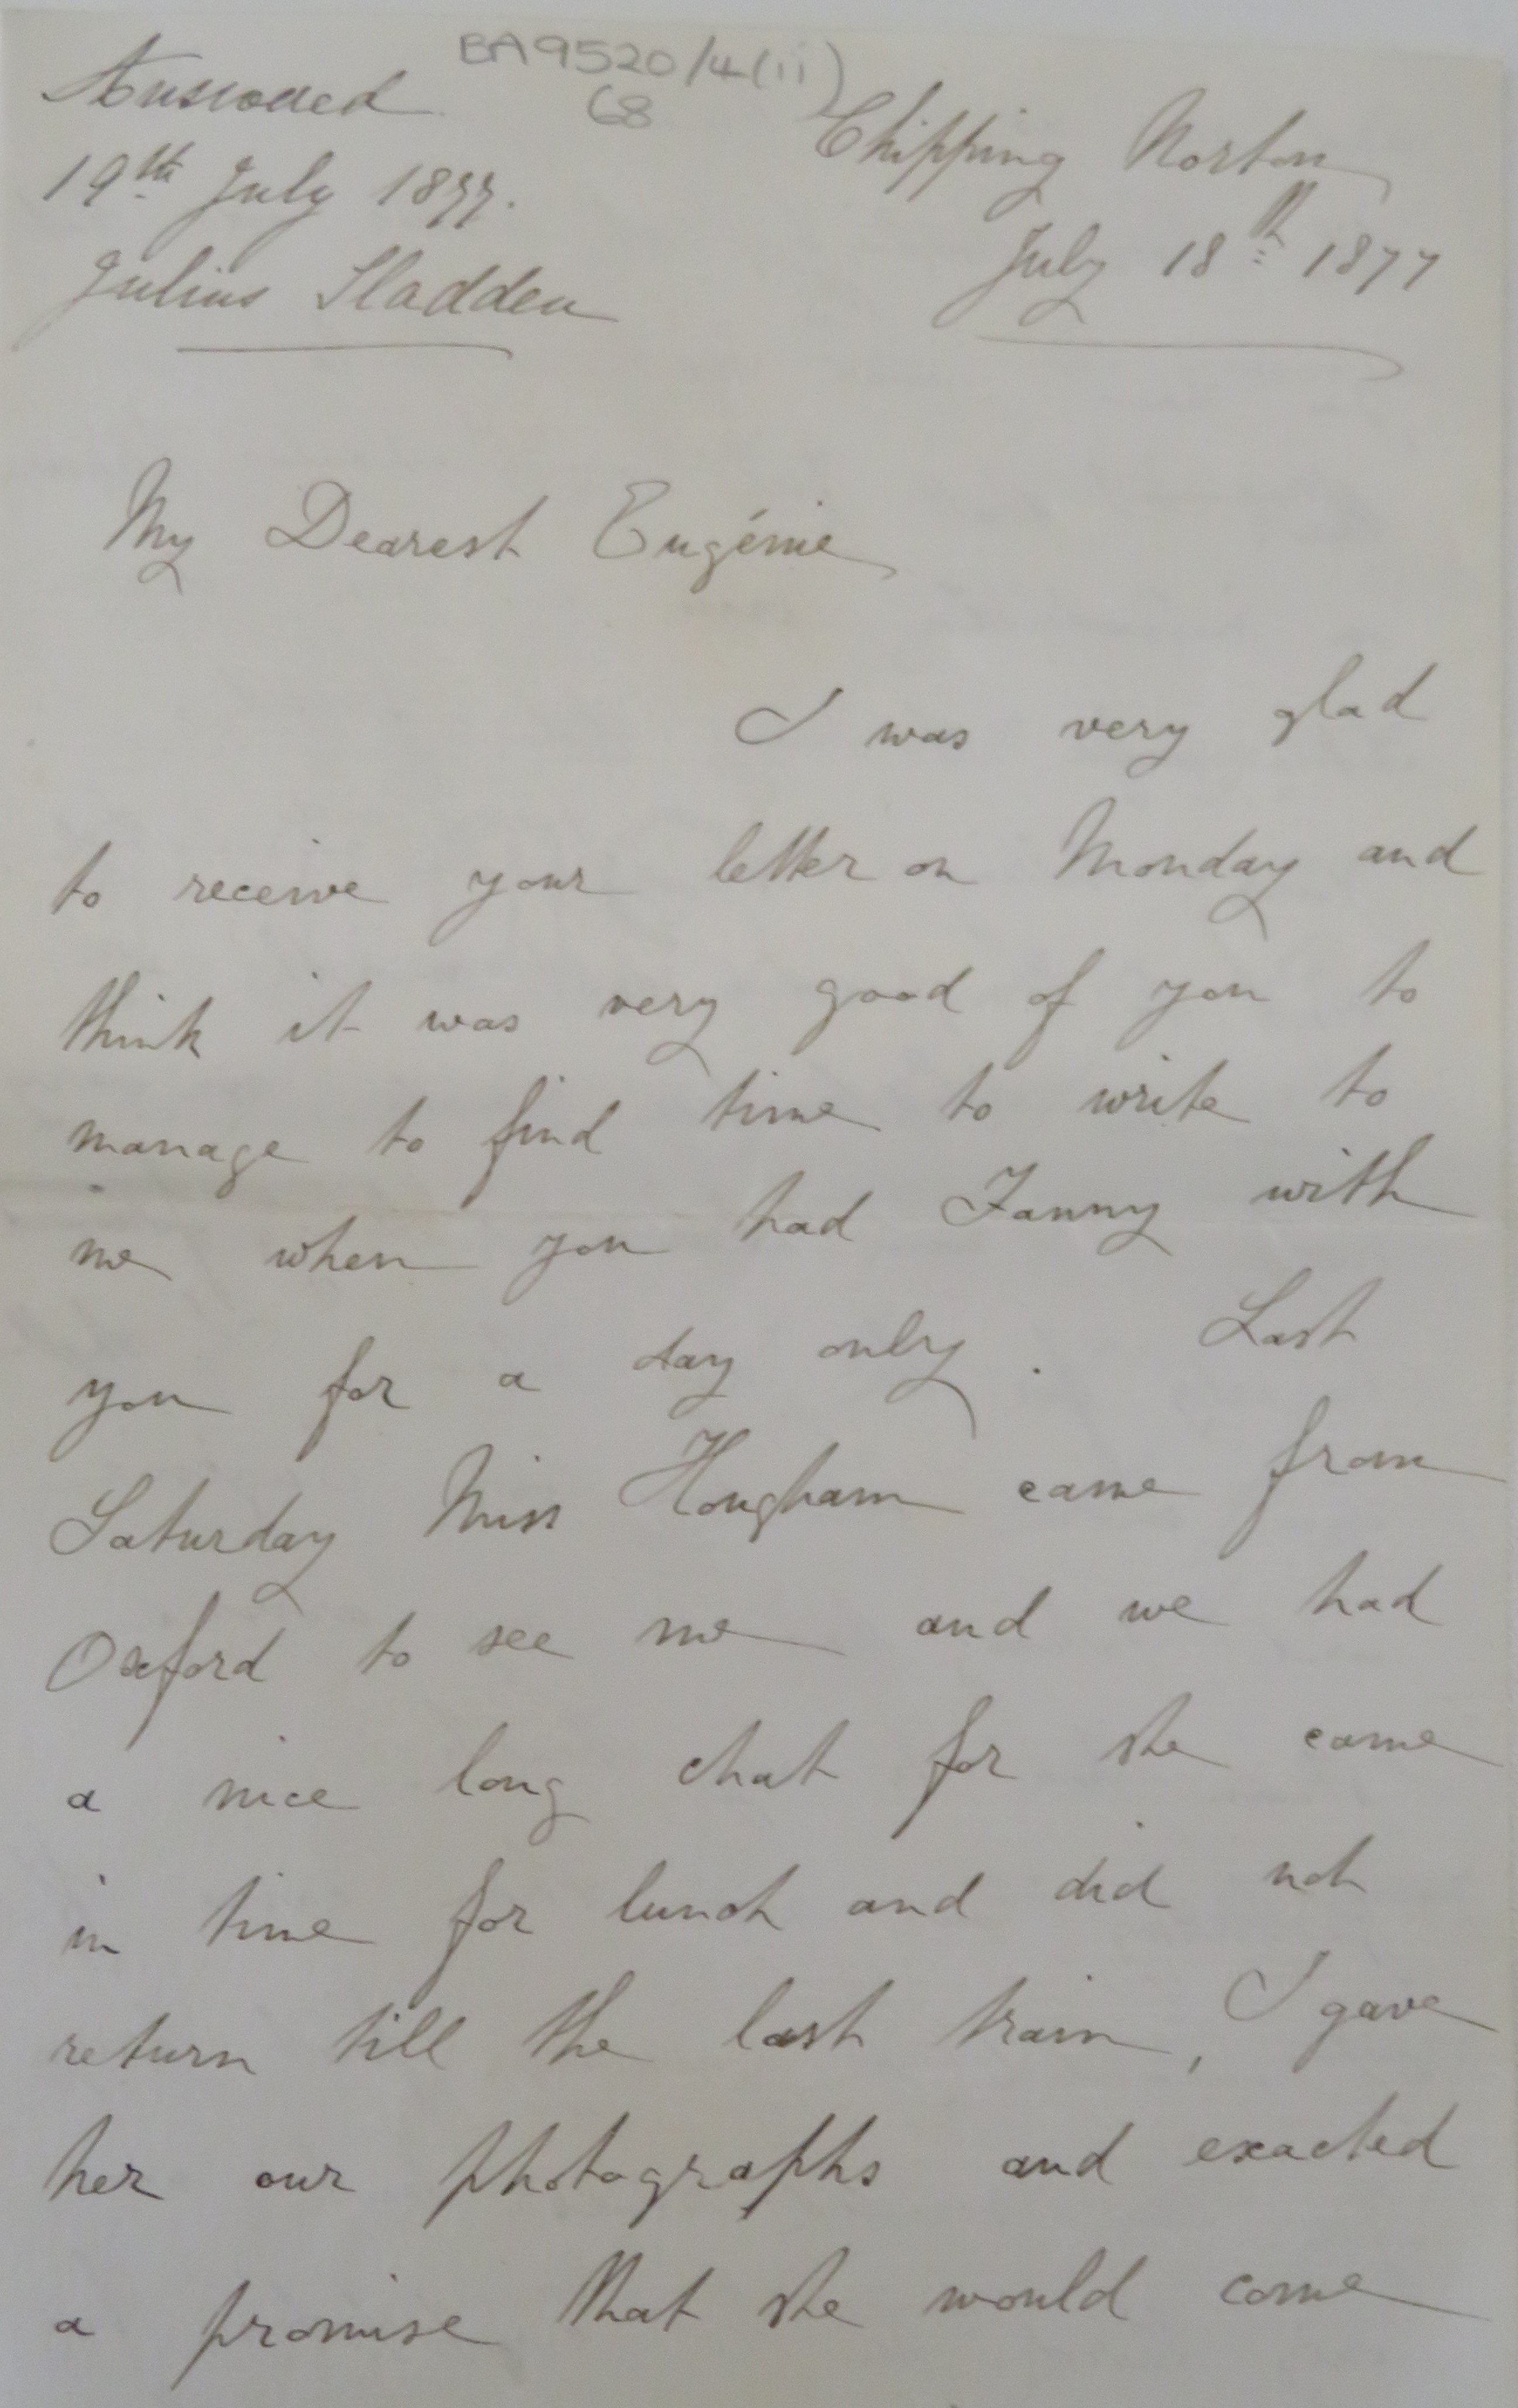 BA9520/4(ii)
68
Answered
19th July 1877.
Julius Sladden
Chipping Norton
July 18th 1877
My Dearest Eugénie
I was very glad
to receive your letter on Monday and
think it was very good of you to
manage to find time to write to
me when you had Fanny with
you for a day only. Last
Saturday Miss Hougham came from
Oxford to see me and we had
a nice long chat for she came
in time for lunch and did not
return till the last train, I gave
her our photographs and exacted
a promise that she would come